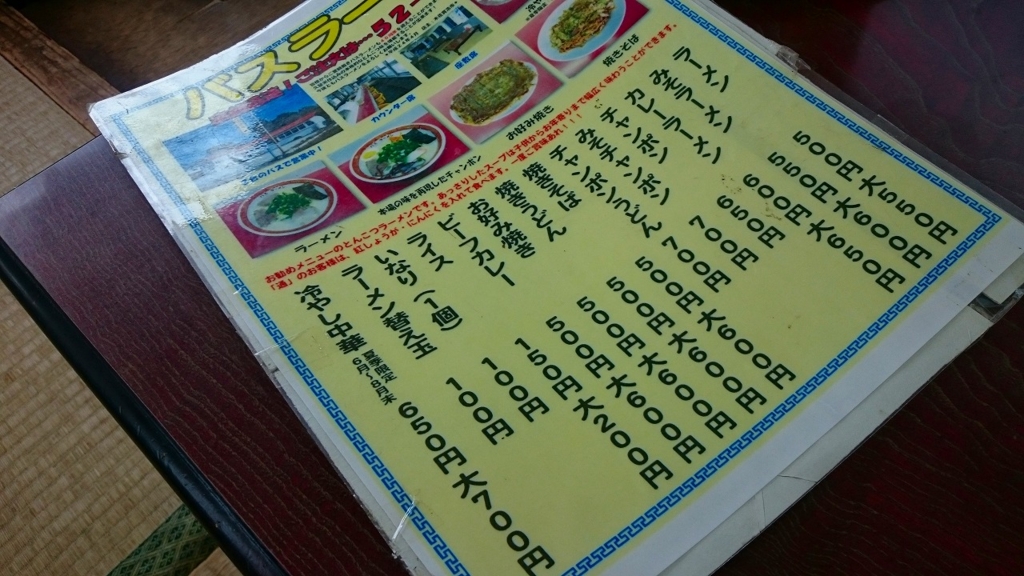 バスラー
52-
座敷席
カウンター席
このバスで営業中！
焼きそば
お好み焼き
本場の味を再現したチャンポン
ラーメン
お勧めメニューのとんこつラーメンです。あっさりしたスープは子供からお年寄りまで幅広く味わうことができます。
「通」のお客様は、紅しょうが・にんにくを入れて食べます。一度ご賞味あれ！！！
ラーメン 500円 大550円
みそラーメン 550円 大600円
カレーラーメン 600円 大650円
チャンポン 650円
みそチャンポン 700円
チャンポンうどん 700円
焼きそば 500円 大600円
焼きうどん 500円 大600円
お好み焼き 500円 大600円
ビーフカレー 500円
ライス 150円 大200円
いなり（1個） 100円
ラーメン替え玉 100円
冷やし中華 夏季限定 6月-8月末 650円 大700円